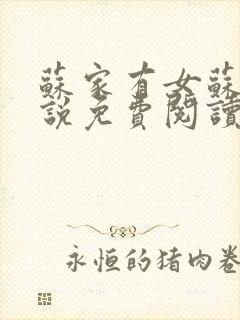 蘇家有女蘇
說免費閱讀
永恒的猪肉卷